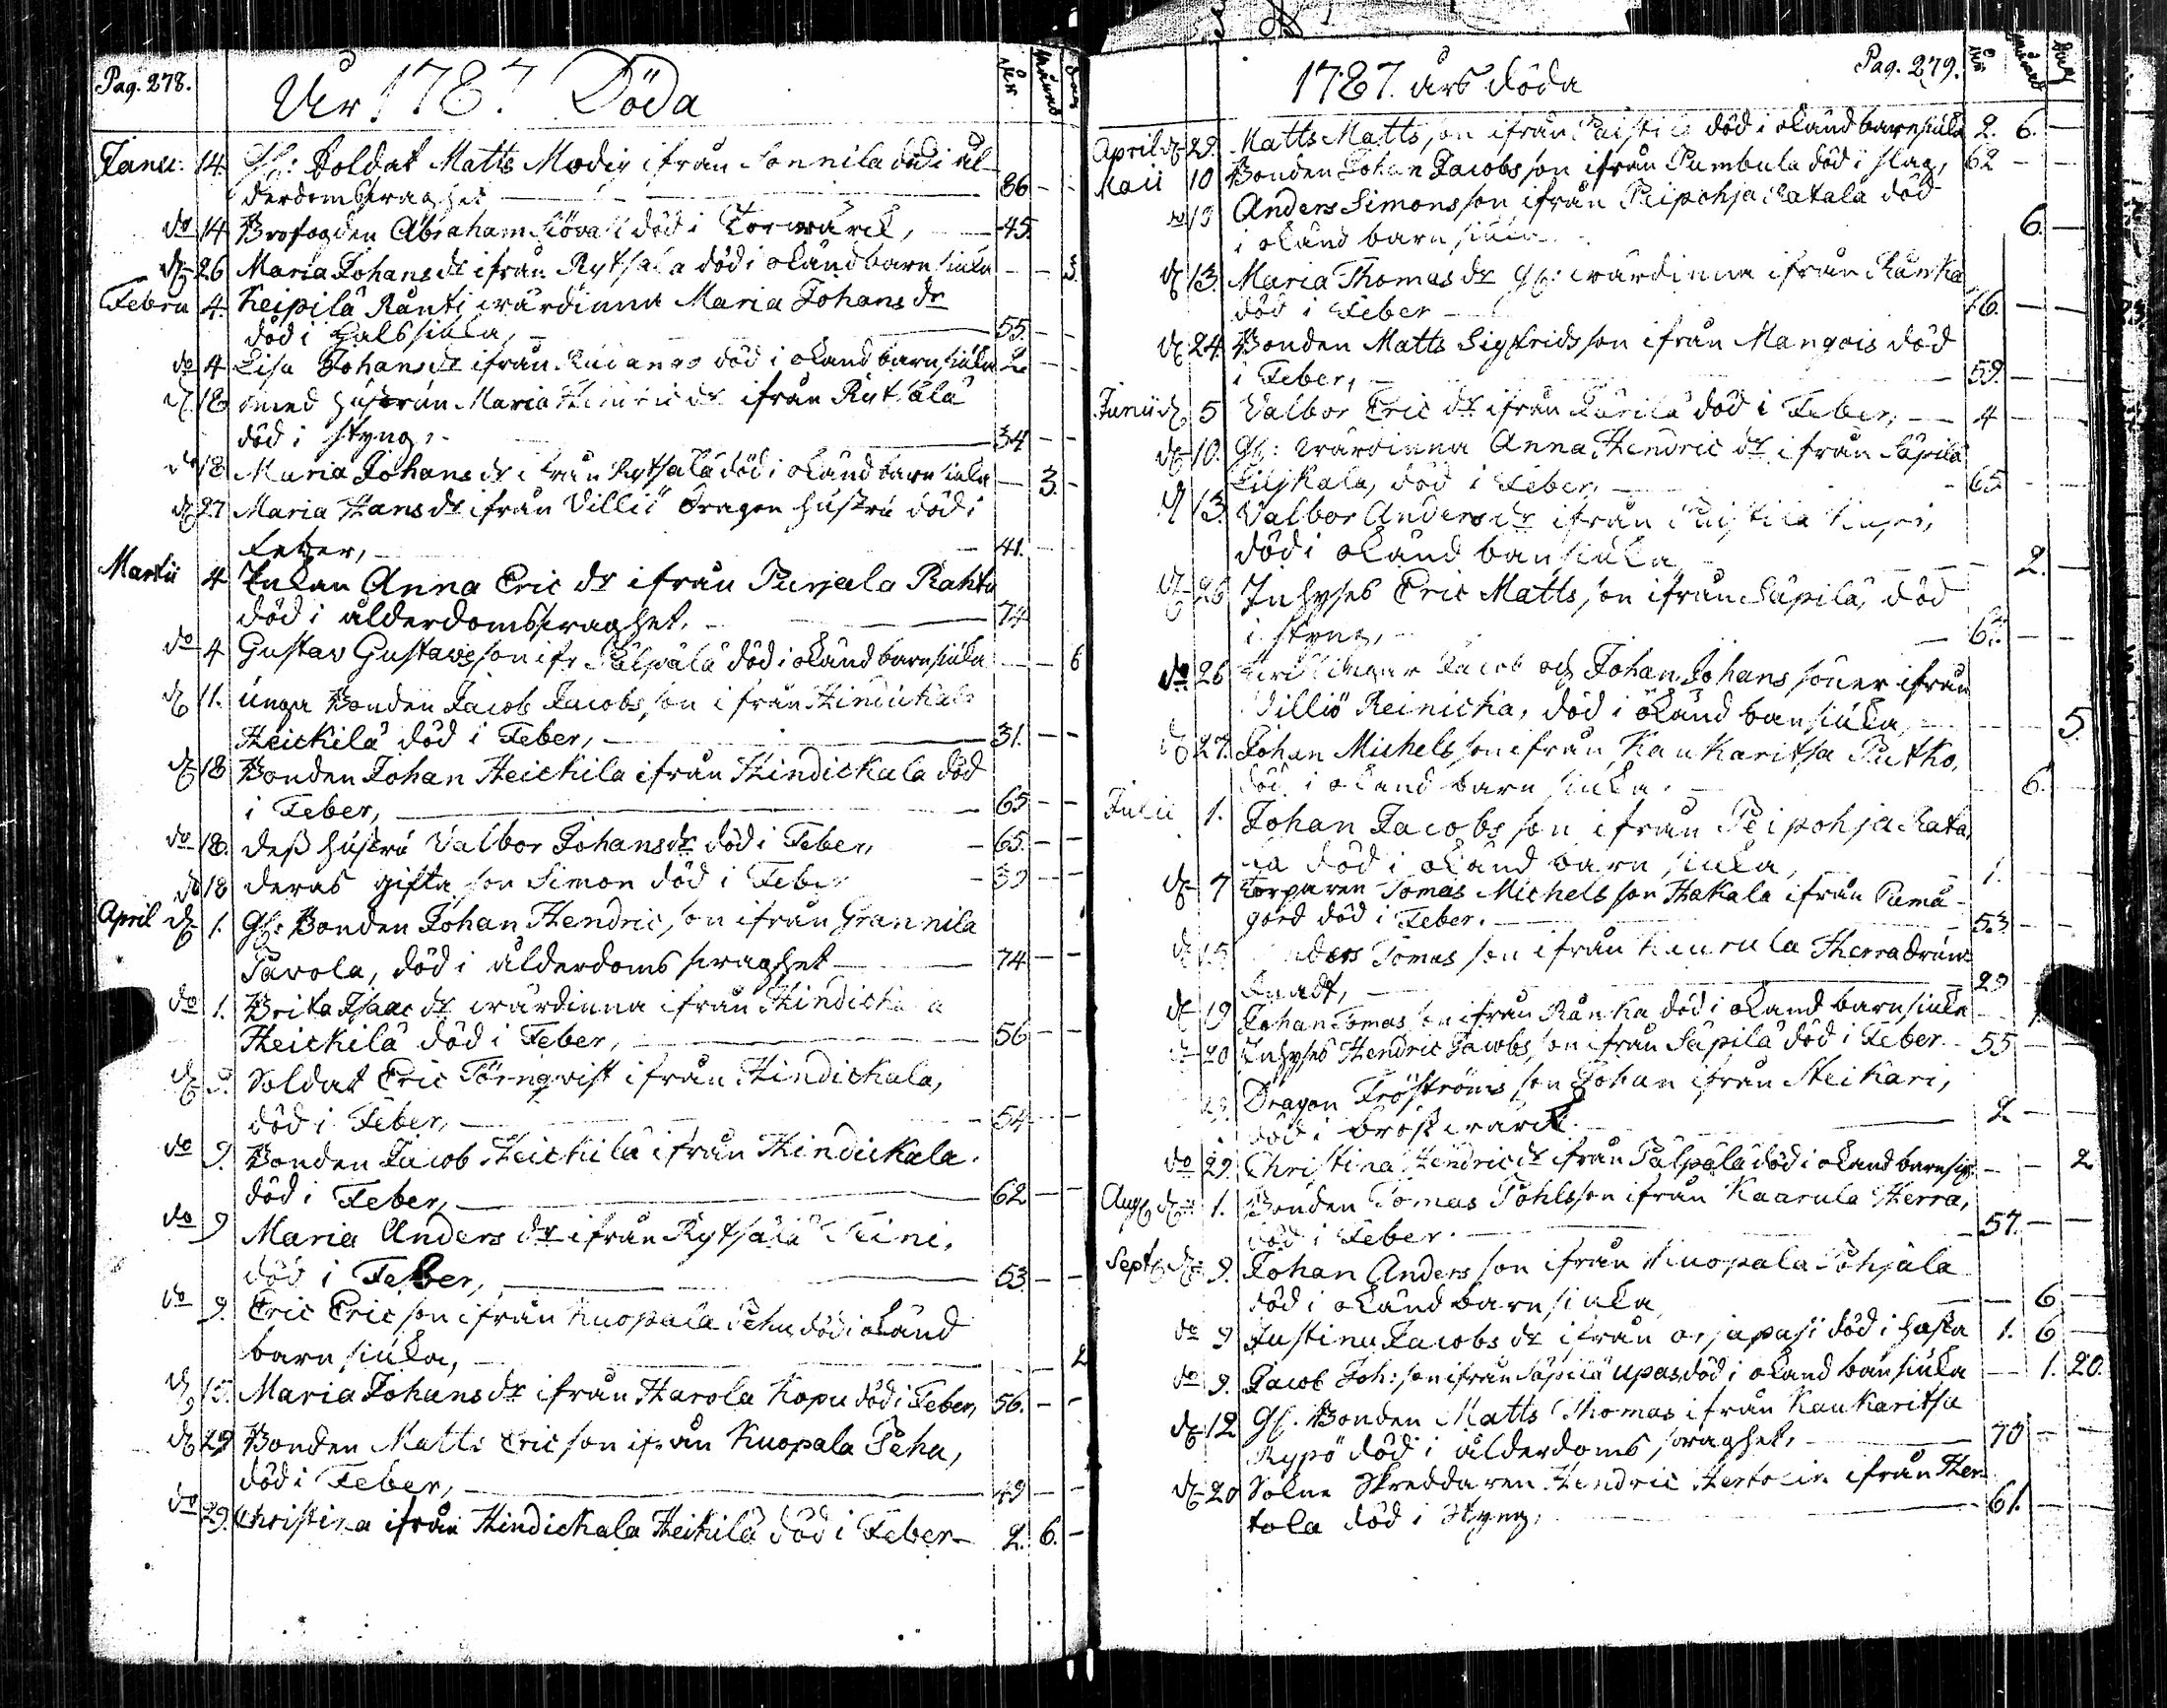 Pag. 278.
År 1787 Döda
åhr månad dagar
Janu: 14. Gl: Soldat Matts Modig ifrån Sonnila död i ål-
derdoms kraghet 86 - -
do 14 Brofogden Abraham död i Torwärck, 45.
d. 26 Maria Johans dr ifrån Rytsälä död i okänd barnsiuka - - 3.
Febru 4. Keipilä Ränti wärdinna Maria Johans dr
död i halssiuka, 55. - -
do 4 Lisa Johans dr ifrån död i okänd barnsiuka 2 - -
d. 18 smed hustrun Maria Hinric dr ifrån Rytsälä
död i styng, 34 - -
do 18 Maria Johans dr ifrån Rytsälä död i okänd barnsiuka - 3. -
d. 27 Maria Hans dr ifrån Villiö Dragon hustru död i
feber, 41. - -
Martii 4 Enkan Anna Eric dr ifrån Punjala Rahtu
död i ålderdomskraghet, 74
do 4 Gustav Gustavsson ifr Pälpälä död i okänd barnsiuka - - 6
d. 11. unga Bonden Jacob Jacobs son ifrån Hindickala
Heickilä död i Feber, 31. - -
d. 18 Bonden Johan Heickila ifrån Hindickala död
i Feber, 65 - -
do 18. dess hustru Valbor Johans dr död i Feber, 65. - -
do 18 deras gifta son Simon död i Feber 39 - -
April d. 1. Gl: Bonden Johan Hendric son ifrån Grannila
Pavola, död i ålderdoms kraghet 74 - -
do 1. Brita Isaac dr wärdinna ifrån Hindickala
Heickilä död i Feber, 56 - -
d. 9. Soldat Eric Törnqvist ifrån Hindickala,
död i Feber, 54 - -
do 9. Bonden Jacob Heickilä ifrån Hindickala
död i Feber, 62 - -
do 9 Maria Anders dr ifrån Rytsälä Heini,
död i Feber, 53. - -
do 9. Eric Ericson ifrån Kuopala Pehu död i okänd
barnsiuka, - - 2
d. 15. Maria Johans dr ifrån Harola Kopu död i Feber, 56. - -
d. 29 Bonden Matts Ericson ifrån Kuopala Pehu,
död i Feber, 49 - -
do 29. Christina ifrån Hindickala Heikilä död i Feber 2. 6. -
1787. års döda
Pag. 279.
åhr månad dag
April d. 29. Matts Matts son ifrån Paistila död i okänd barnsiuka 2. 6. -
Maii 10 Bonden Johan Jacobs son ifrån Pumbula död i slag, 62 - -
do 13 Anders Simons son ifrån Peipohja Ratala död
i okänd barnsiuka 6. -
d. 13. Maria Thomas dr Gl: wärdinna ifrån Ränka
död i Feber 76. - -
d. 24 Bonden Matts Sigfrids son ifrån Mangois död
i Feber, 59. - -
Junii d. 5 Valbor Eric dr ifrån Kärilä död i Feber, 4 - -
d. 10. Gl: wärdinna Anna Hendric dr ifrån Säpilä
Liljkala, död i Feber, 65 - -
d. 13. Valbor Anders dr ifrån Paistila
död i okänd barnsiuka, - 2. -
d. 26 Inhyses Eric Matts son ifrån Säpilä, död
i styng, - -
do 26 Jacob och Johan Johans söner ifrån
Villiö Reinicka, död i okänd barnsiuka, 5.
d. 27. Johan Michels son ifrån Kaukaritsa Putko,
död i okänd barn siuka. 6.
Julii 1. Johan Jacobs son ifrån Peipohja Rata
la död i okänd barn siuka, 1.
d. 7 Torparen Tomas Michels son Hakala ifrån Puma-
gård död i Feber. 53 - -
d. 15 Anders Tomas son ifrån Kaurula Herra drun-
knadt, 29
d. 19 Johan Tomas son ifrån Ränka död i okänd barnsiuka 1.
d. 20 Inhyses Hendric Jacobs son ifrån Säpilä död i Feber 55 - -
23. Dragon Fröströms son Johan ifrån Heikari,
död i bröstwärck. 2 - -
do 29. Christina Hendric dr ifrån Pälpälä död i okänd barnsiu - - 2
Aug d. 1. Bonden Tomas Pohls son ifrån Kaarula Herra,
död i Feber. 57. - -
Sept d. 9. Johan Anders son ifrån Kuopala Pohjala
död i okänd barn siuka - 6 -
do 9 Justina Jacobs dr ifrån död i hosta 1. 6 -
do 9. Jacob Joh: son ifrån Säpilä Upas, död i okänd barnsiuka - 1. 20.
d. 12 Gl. Bonden Matts Thomas ifrån Kaukaritsa
Rypö död i ålderdoms kraghet, 70 - -
d. 20 Solne Skreddaren Hendric Hertolin ifrån Her
tola död i styng, 61. - -